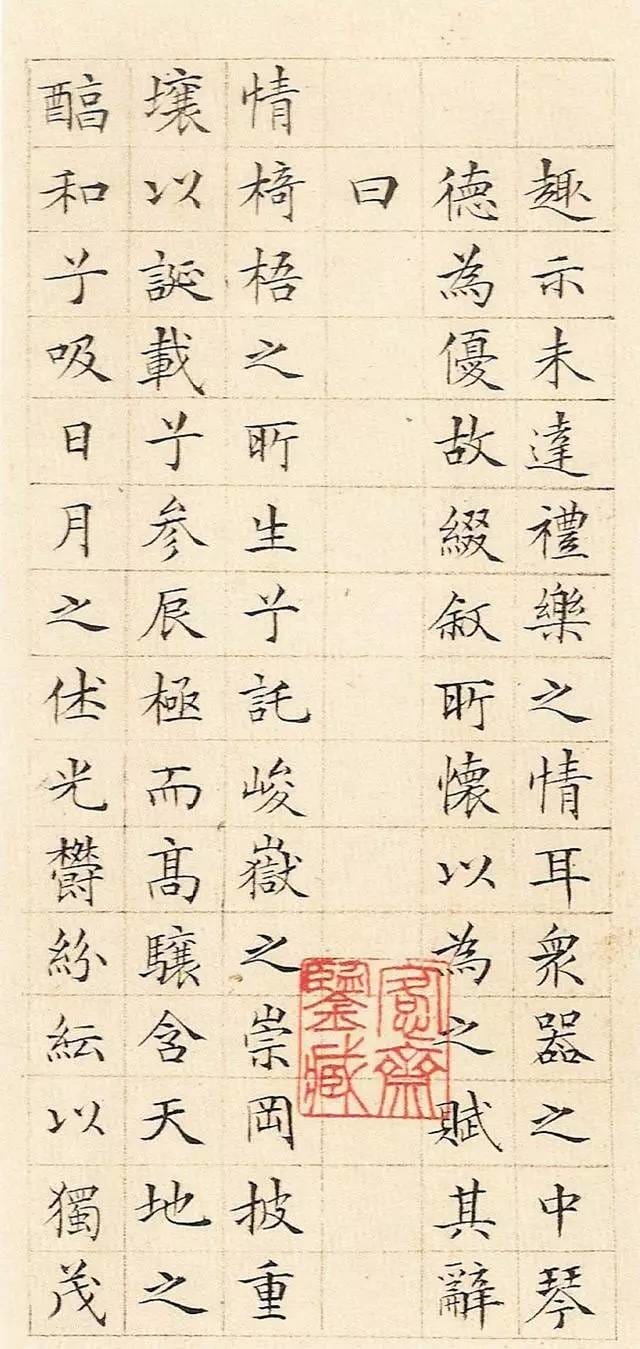 趣示未達禮樂之情耳衆器之中琴
德為優故綴叙所懷以為之賦其辭
曰
情椅梧之所生兮託峻嶽之崇岡披重
壤以誕載兮参辰極而髙驤含天地之
醇和兮吸日月之休光欝紛紜以獨茂
愙齋
鑒藏